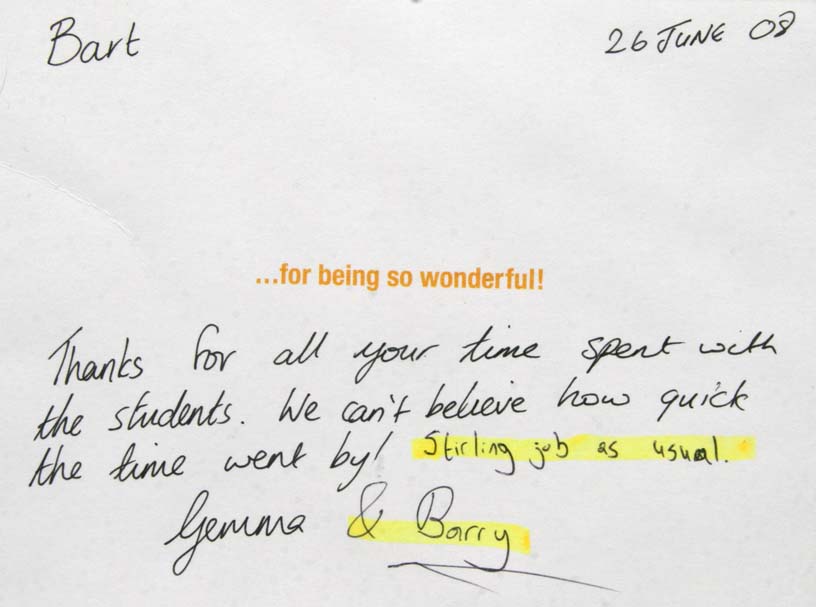 Bart
26 JUNE 08
...for being so wonderful!
Thanks for all your time spent with
the students. We can't believe how quick
the time went by! Stirling job as usual.
Gemma & Barry